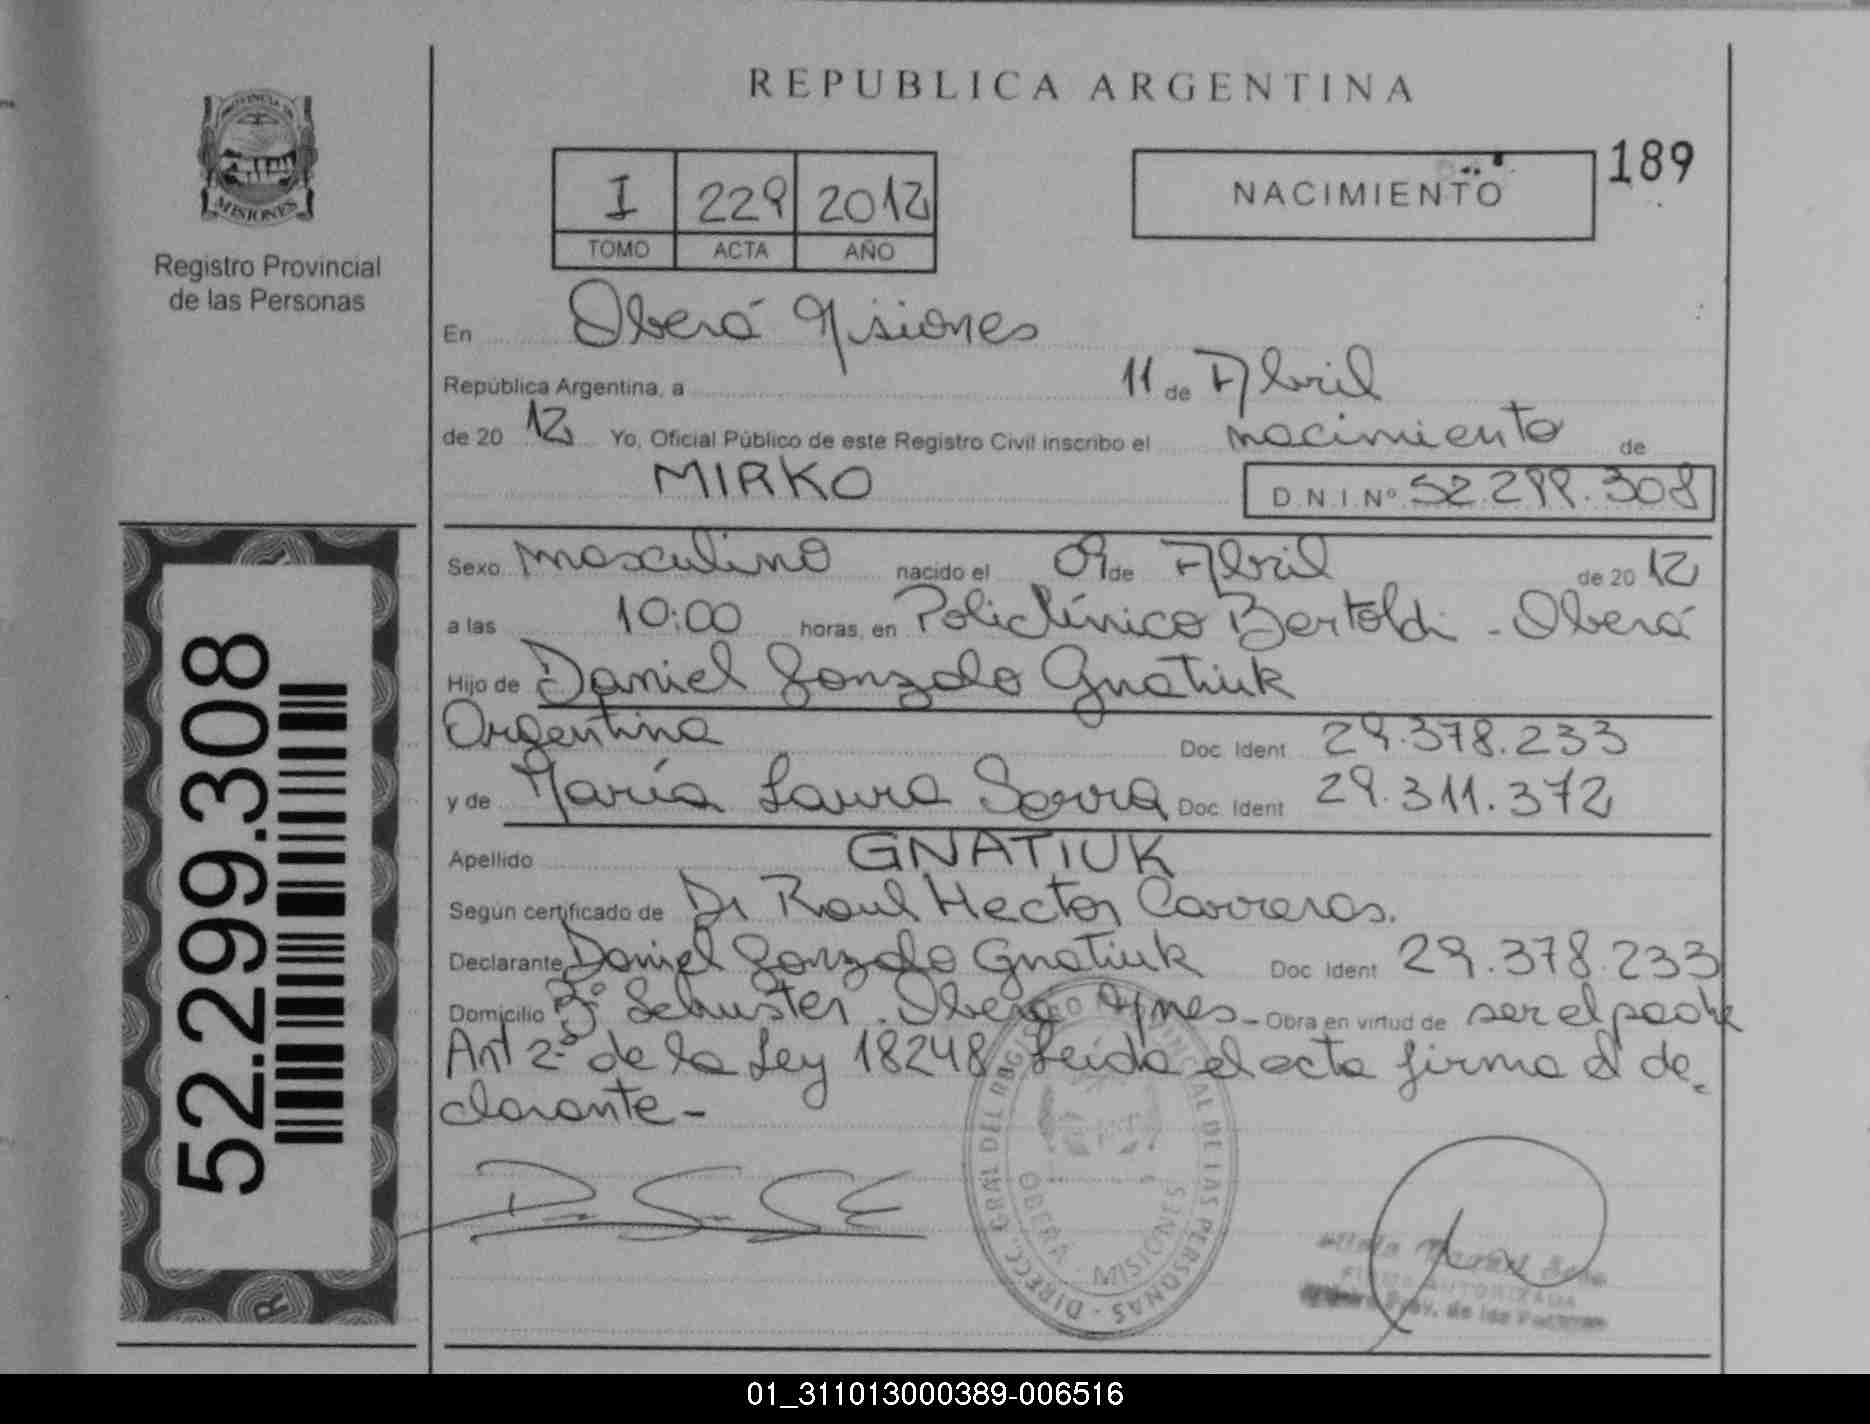 REPUBLICA ARGENTINA
PROVINCIA DE
MISIONES
Registro Provincial
de las Personas
I 229 2012
TOMO ACTA AÑO
NACIMIENTO
189
En Oberá Misiones
República Argentina, a 11 de Abril
de 20 12 Yo, Oficial Público de este Registro Civil inscribo el nacimiento de
MIRKO D.N.I. Nº 52.299.308
Sexo masculino nacido el 09 de Abril de 20 12
a las 10:00 horas, en Policlínico Bertoldi - Oberá
Hijo de Daniel Gonzalo Gnatiuk
Argentina Doc. Ident. 29.378.233
y de María Laura Serra Doc. Ident. 29.311.372
Apellido GNATIUK
Según certificado de Dr Raul Hector Carreras.
Declarante Daniel Gonzalo Gnatiuk Doc. Ident. 29.378.233
Domicilio Bº Schuster. Oberá Mnes - Obra en virtud de ser el padre
Art 2º de la Ley 18248 Leida el acta firma el de-
clarante -
52.299.308
R
DIRECC. GRAL DEL REGISTRO PROVINCIAL DE LAS PERSONAS
OBERA - MISIONES
FIRMA AUTORIZADA
Prov. de las Personas
01_311013000389-006516